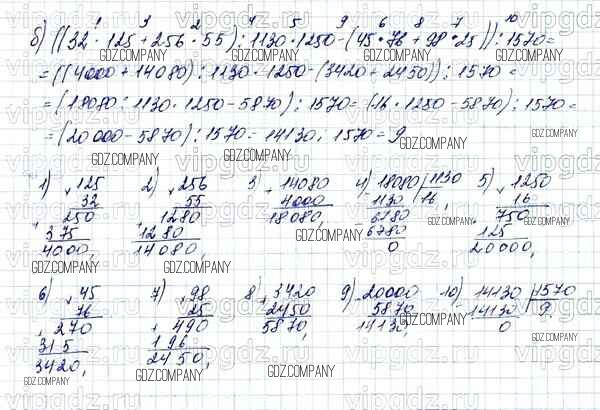 1 3 2 4 5 9 6 8 7 10
б) ((32 · 125 + 256 · 55) : 1130 · 1250 - (45 · 76 + 98 · 25)) : 1570 =
= ((4000 + 14080) : 1130 · 1250 - (3420 + 2450)) : 1570 =
= (18080 : 1130 · 1250 - 5870) : 1570 = (16 · 1250 - 5870) : 1570 =
= (20000 - 5870) : 1570 = 14130 : 1570 = 9
1) × 125 2) × 256 3 + 14080 4) - 18080 | 1130 5) × 1250
32 55 4000 1130 16, 16
+ 250 + 1280 18080, - 6780 + 750
375 1280 6780 125
4000, 14080, 0 20000,
6) × 45 7) × 98 8) + 3420 9) - 20000 10) - 14130 | 1570
76 25 2450 5870 14130 9,
+ 270 + 490 5870, 14130 0
315 196
3420, 2450,
GDZ.COMPANY
vipgdz.com